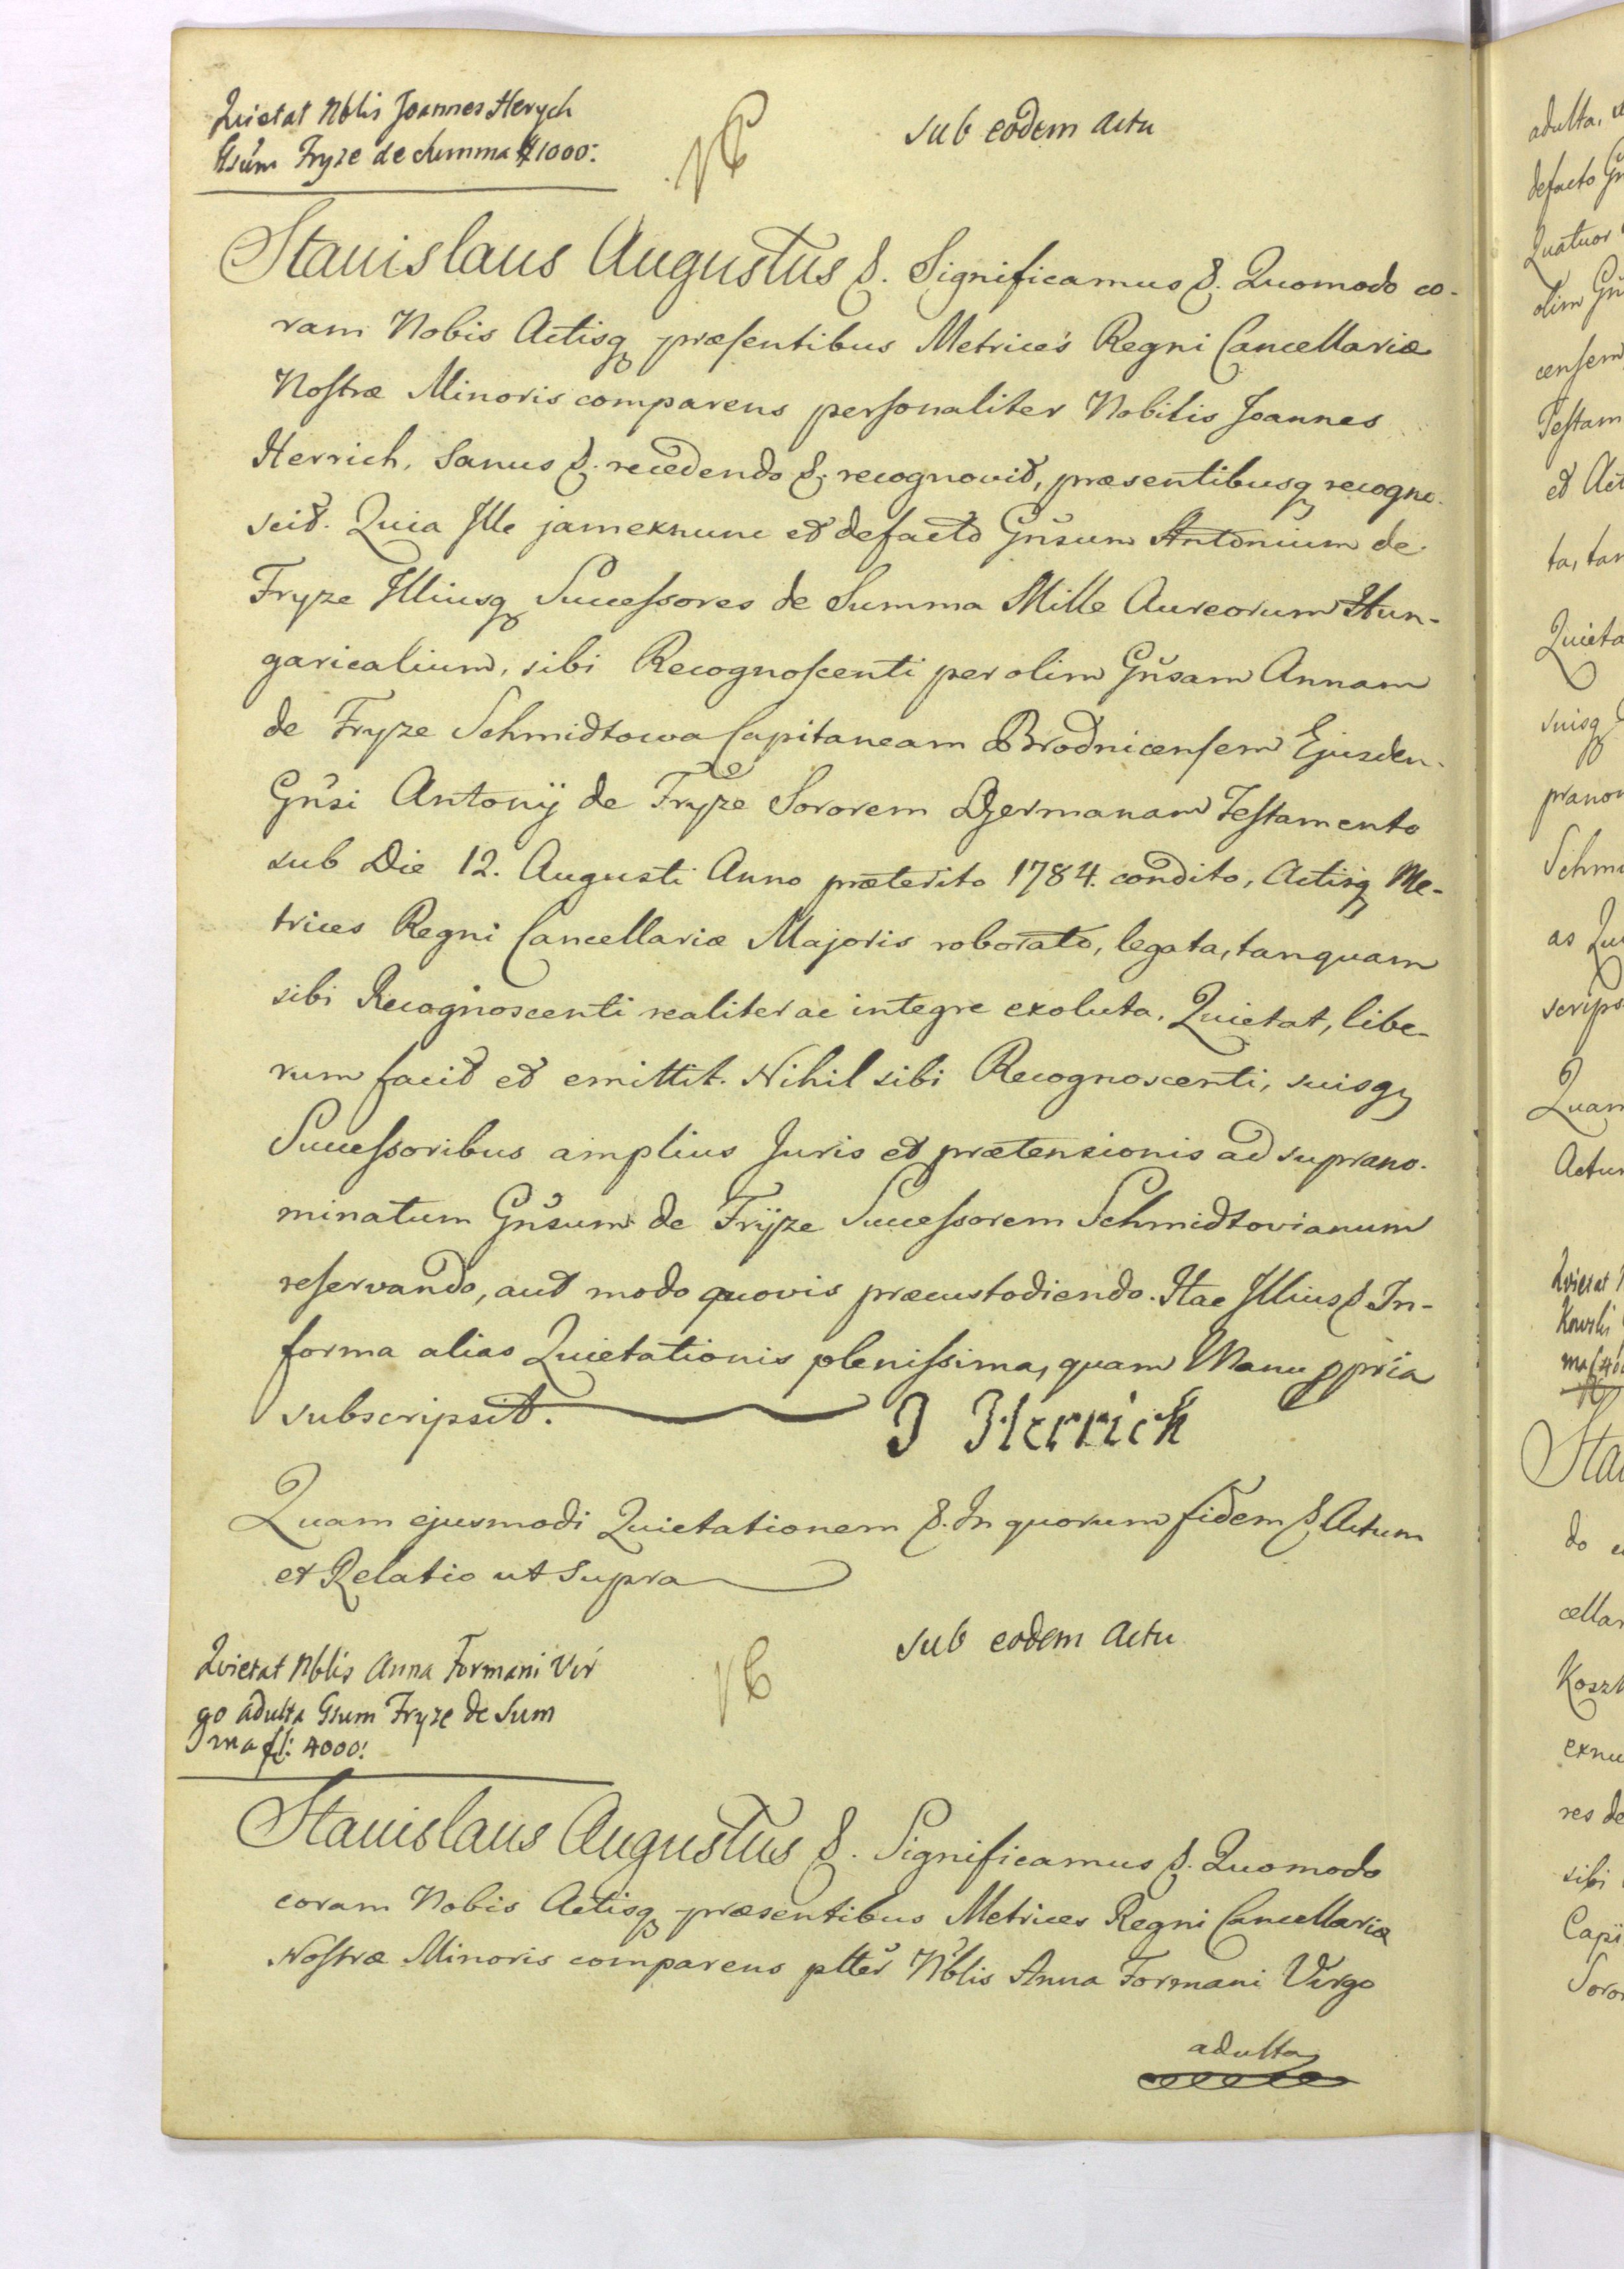 Quietat Nblis Joannes Herych
Gsum Fryze de summa # 1000:
sub eodem Actu
Stanislaus Augustus &. Significamus &. Quomodo co-
ram Nobis Actisq præsentibus Metrices Regni Cancellariæ
Nostræ Minoris comparens personaliter Nobilis Joannes
Herrich, Sanus &. recedendo &. recognovit, præsentibusq recogno-
scit. Quia Ille jamexnunc et defacto Gñsum Antonium de
Fryze Illiusq Successores de Summa Mille Aureorum Hun-
garicalium, sibi Recognoscenti per olim Gñsam Annam
de Fryze Schmidtowa Capitaneam Brodnicensem Ejusdem
Gñsi Antonij de Fryze Sororem Germanam Testamento
sub Die 12. Augusti Anno præterito 1784. condito, Actisq Me-
trices Regni Cancellariæ Majoris roborato, legata, tanquam
sibi Recognoscenti realiter ac integre exoluta, Quietat, libe-
rum facit et emittit. Nihil sibi Recognoscenti, suisq
Successoribus amplius Juris et prætensionis ad suprano-
minatum Gñsum de Frÿze Successorem Schmidtovianum
reservando, aut modo quovis præcustodiendo. Hac Illius & In-
forma alias Quietationis plenissima, quam Manu ppria
subscripsit.
J Herrich
Quam ejusmodi Quietationem &. In quorum fidem &. Actum
et Relatio ut supra
sub eodem Actu
Quietat Nblis Anna Formani Vir
go adulta Gsum Fryze de Sum
ma fl: 4000:
Stanislaus Augustus &. Significamus &. Quomodo
coram Nobis Actisq præsentibus Metrices Regni Cancellariæ
Nostræ Minoris comparens pltér Nblis Anna Formani Virgo
adulta
adulta,
defacto
Quatuor
olim
censem
Testam
et Act
ta, tan
Quieta
suisq
pranom
Schmi
as Qui
scrips
Quam
Actum
Quietat
Kowski
Sta
do
cellar
Koszk
exnu
res de
sibi
Capi
Soror